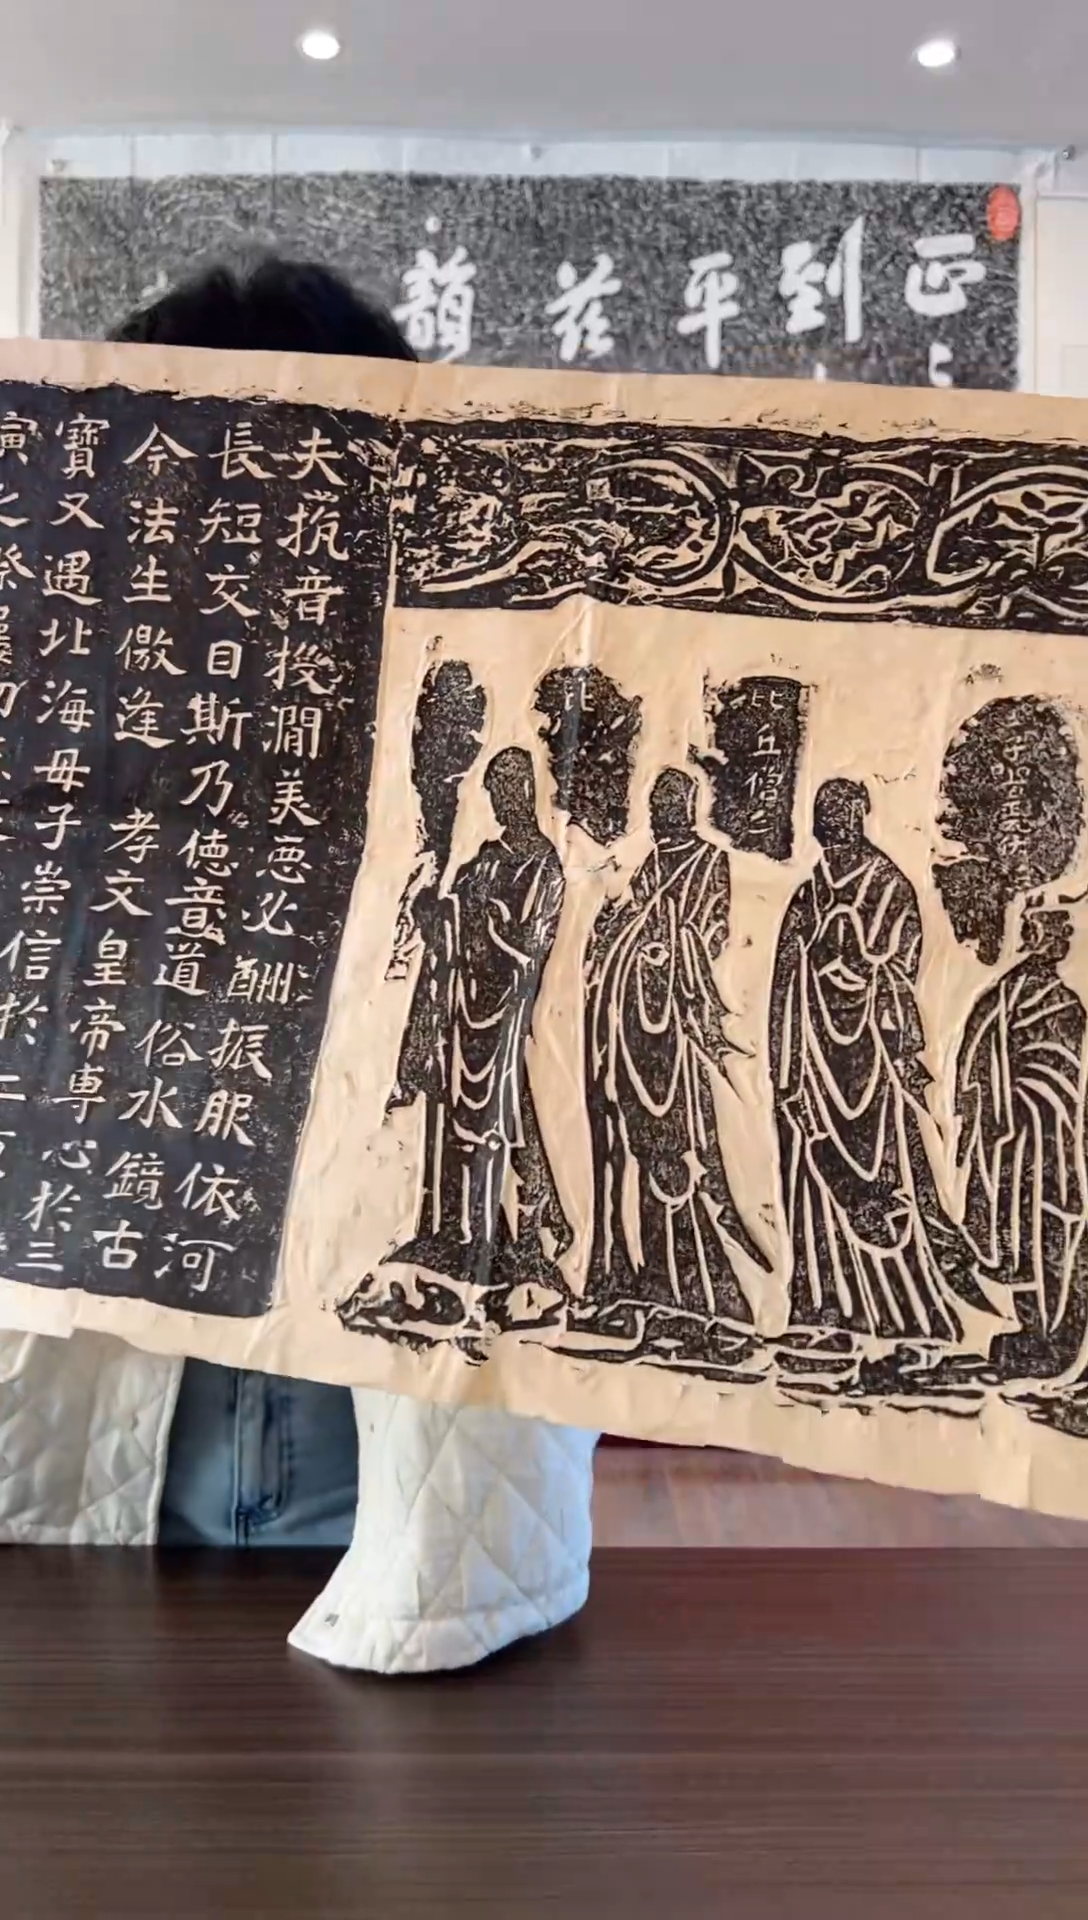 正到平茲韻
夫抗音投澗美惡必酬振服依河
長短交目斯乃德音道俗水鏡古
今法生儌逢孝文皇帝專心於三
寶又遇北海母子崇信於二
比
比丘僧